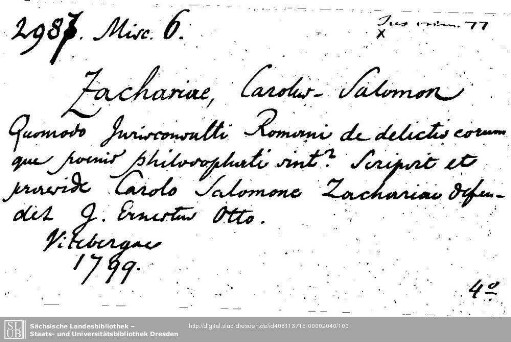 2987. Misc. 6.
Jus crim. 77
x
Zachariae, Carolus Salomon
Quomodo Jurisconsulti Romani de delictis eorum
que poenis philosophati sint? Scripsit et
praeside Carolo Salomone Zachariae defen-
det J. Ernestus Otto.
Vitebergae
1799.
4°
Sächsische Landesbibliothek –
Staats- und Universitätsbibliothek Dresden